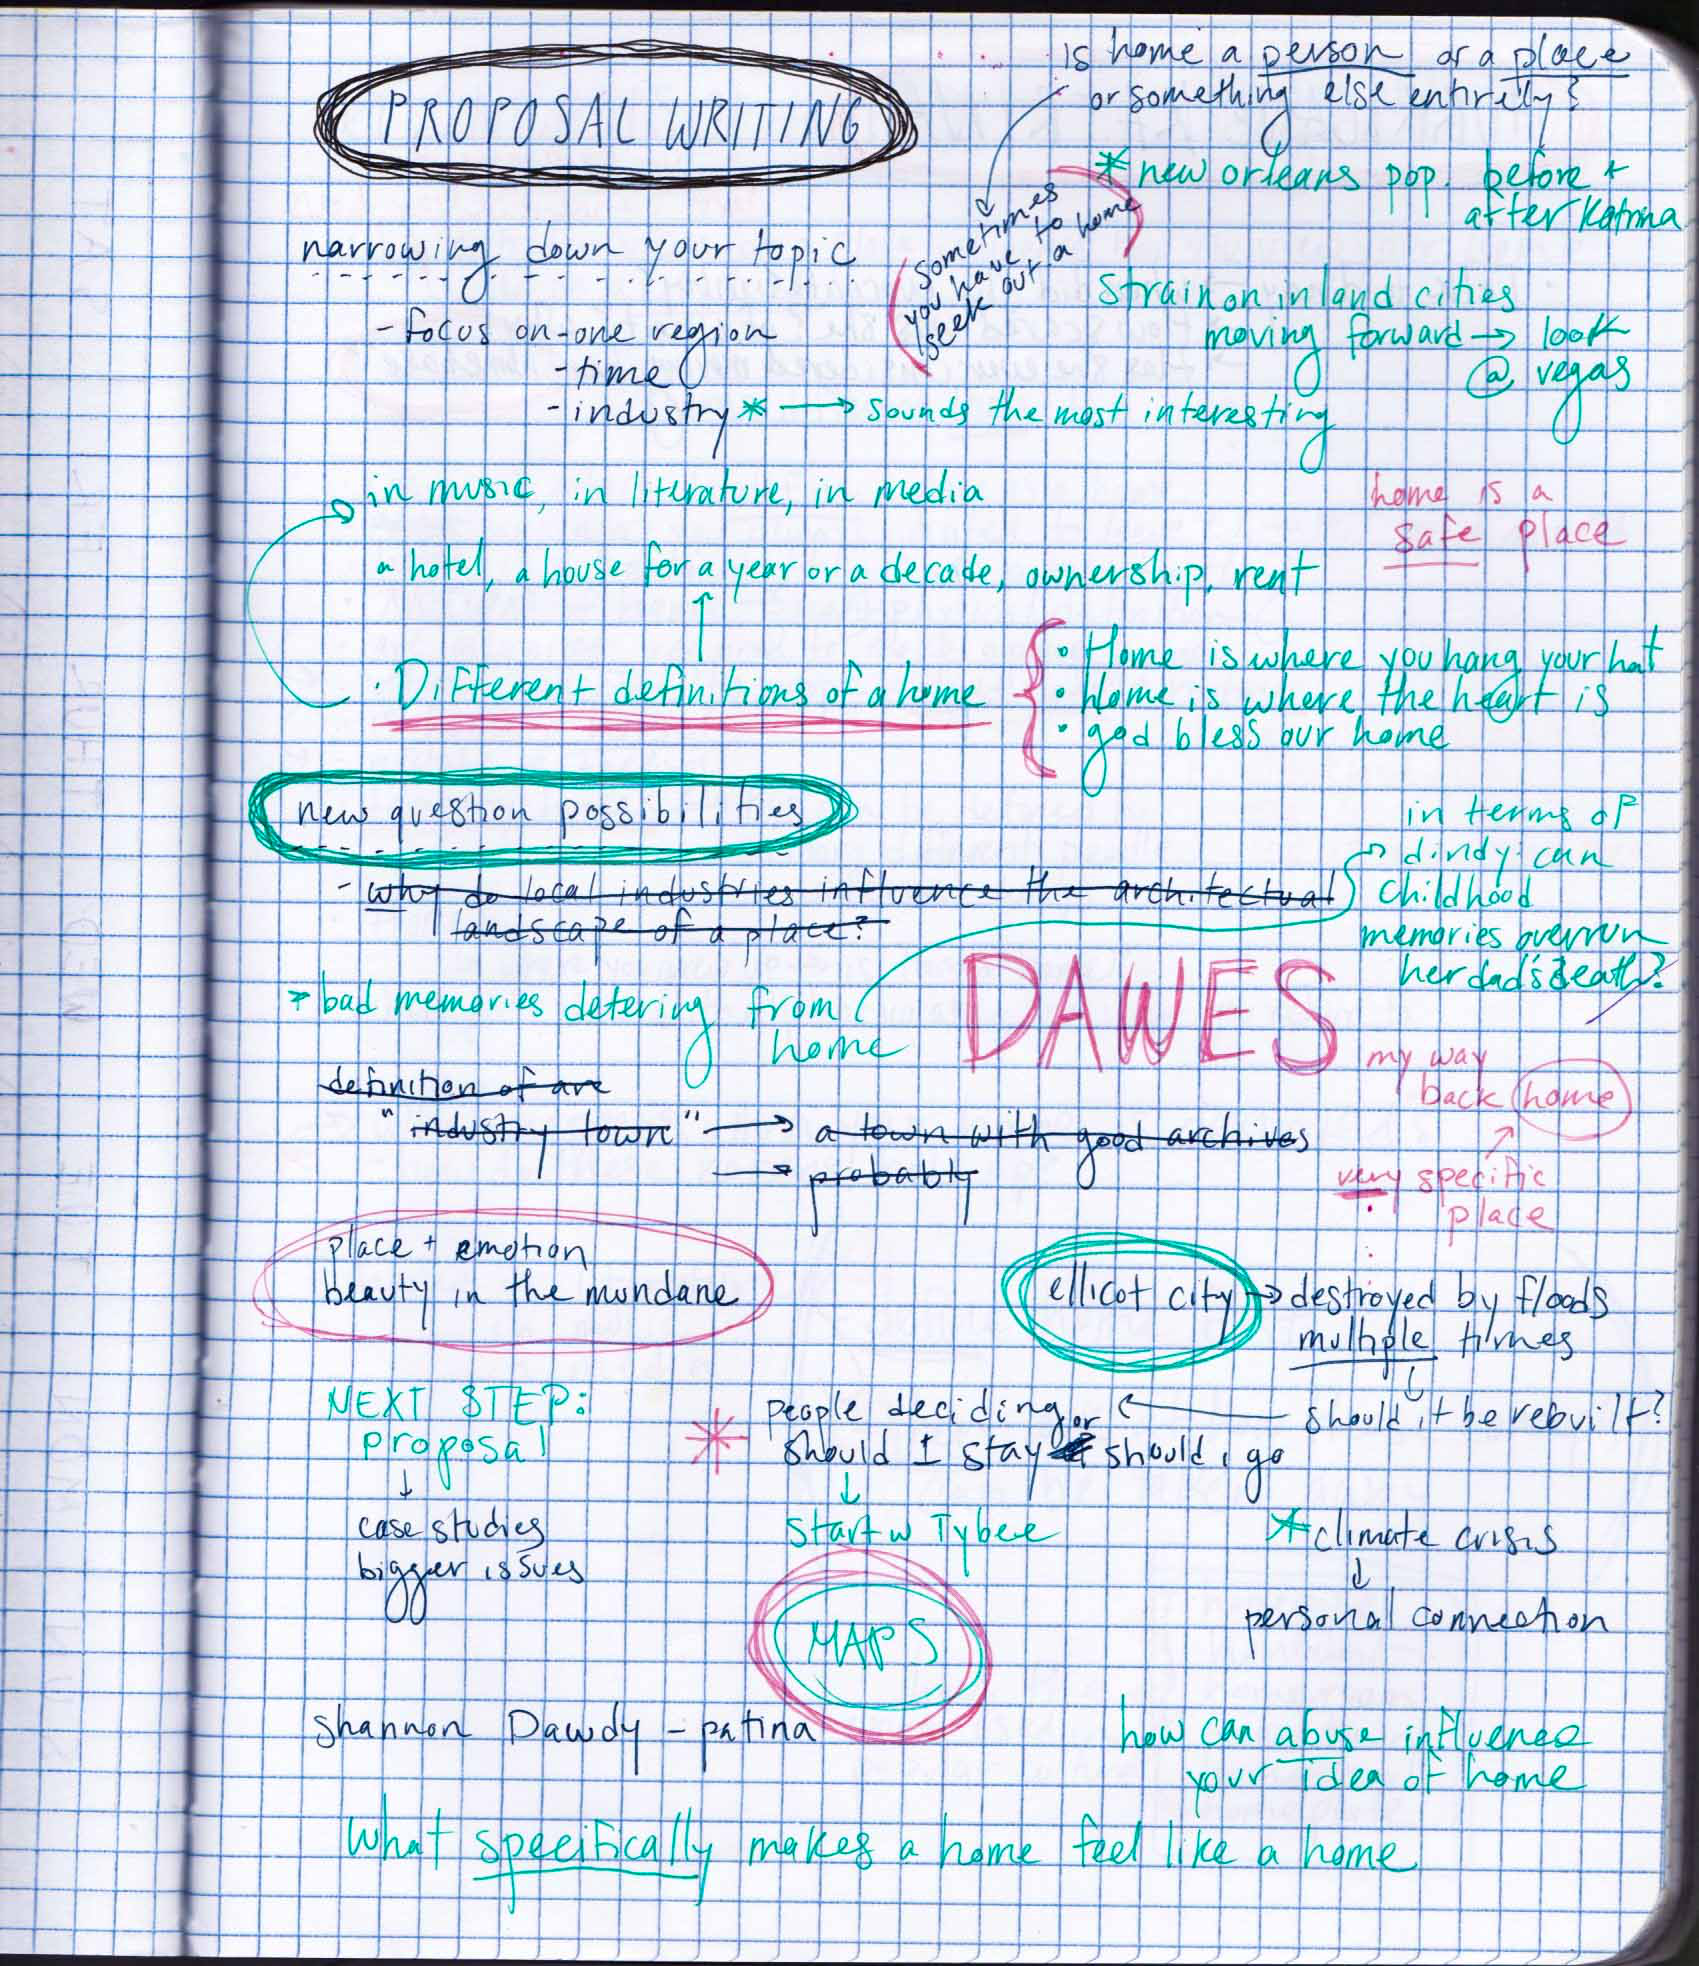 PROPOSAL WRITING
is home a person or a place
or something else entirely?
* new orleans pop. before +
after Katrina
sometimes
you have to
seek out a home
narrowing down your topic
- focus on - one region
- time
- industry * → sounds the most interesting
strain on inland cities
moving forward → look
@ vegas
in music, in literature, in media
home is a
safe place
a hotel, a house for a year or a decade, ownership, rent
· Different definitions of a home
• Home is where you hang your hat
• Home is where the heart is
• god bless our home
new question possibilities
- why do local industries influence the architectual
landscape of a place?
in terms of
dindy: can
childhood
memories overrun
her dad's death?
* bad memories detering from
home
DAWES
my way
back home
very specific
place
definition of are
"industry town" → a town with good archives
→ probably
place + emotion
beauty in the mundane
ellicot city → destroyed by floods
multiple times
should it be rebuilt?
NEXT STEP:
proposal
↓
case studies
bigger issues
* people deciding
should I stay or should i go
↓
start w Tybee
* climate crisis
↓
personal connection
MAPS
Shannon Dawdy - patina
how can abuse influence
your idea of home
What specifically makes a home feel like a home